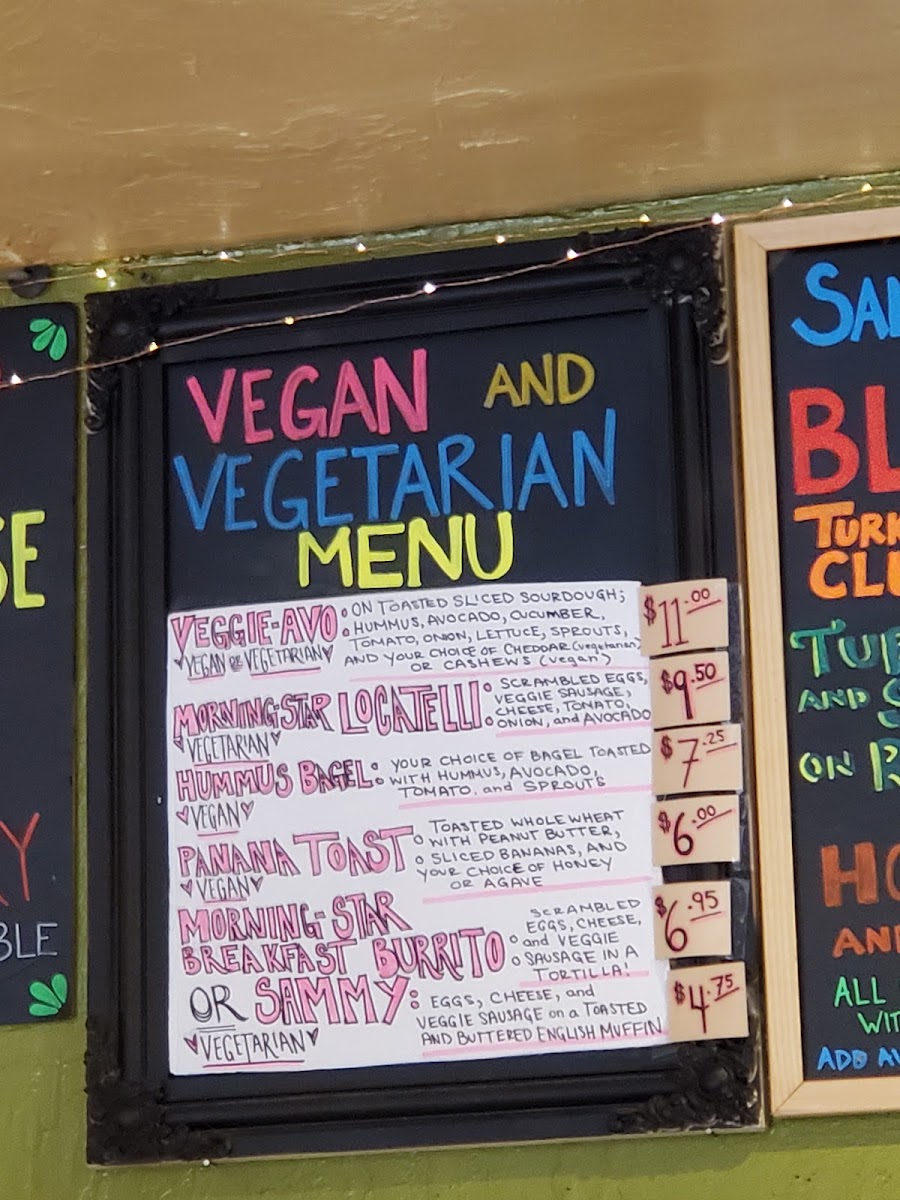 VEGAN AND
VEGETARIAN
MENU
VEGGIE-AVO: ON TOASTED SLICED SOURDOUGH; $11.00
HUMMUS, AVOCADO, CUCUMBER,
TOMATO, ONION, LETTUCE, SPROUTS,
♥VEGAN OR VEGETARIAN♥ AND YOUR CHOICE OF CHEDDAR (vegetarian)
OR CASHEWS (vegan)
MORNING-STAR LOCATELLI: SCRAMBLED EGGS, $9.50
VEGGIE SAUSAGE,
CHEESE, TOMATO,
♥VEGETARIAN♥ ONION, and AVOCADO
HUMMUS BAGEL: YOUR CHOICE OF BAGEL TOASTED $7.25
WITH HUMMUS, AVOCADO,
♥VEGAN♥ TOMATO, and SPROUTS
PANANA TOAST: TOASTED WHOLE WHEAT $6.00
WITH PEANUT BUTTER,
SLICED BANANAS, AND
♥VEGAN♥ YOUR CHOICE OF HONEY
OR AGAVE
MORNING-STAR
BREAKFAST BURRITO: SCRAMBLED $6.95
EGGS, CHEESE,
and VEGGIE
SAUSAGE IN A
TORTILLA!
OR SAMMY: EGGS, CHEESE, and $4.75
VEGGIE SAUSAGE on a TOASTED
♥VEGETARIAN♥ AND BUTTERED ENGLISH MUFFIN
SE
Y
BLE
SAN
BL
TURK
CLU
TU
AND S
ON R
HO
AN
ALL
WIT
ADD AV